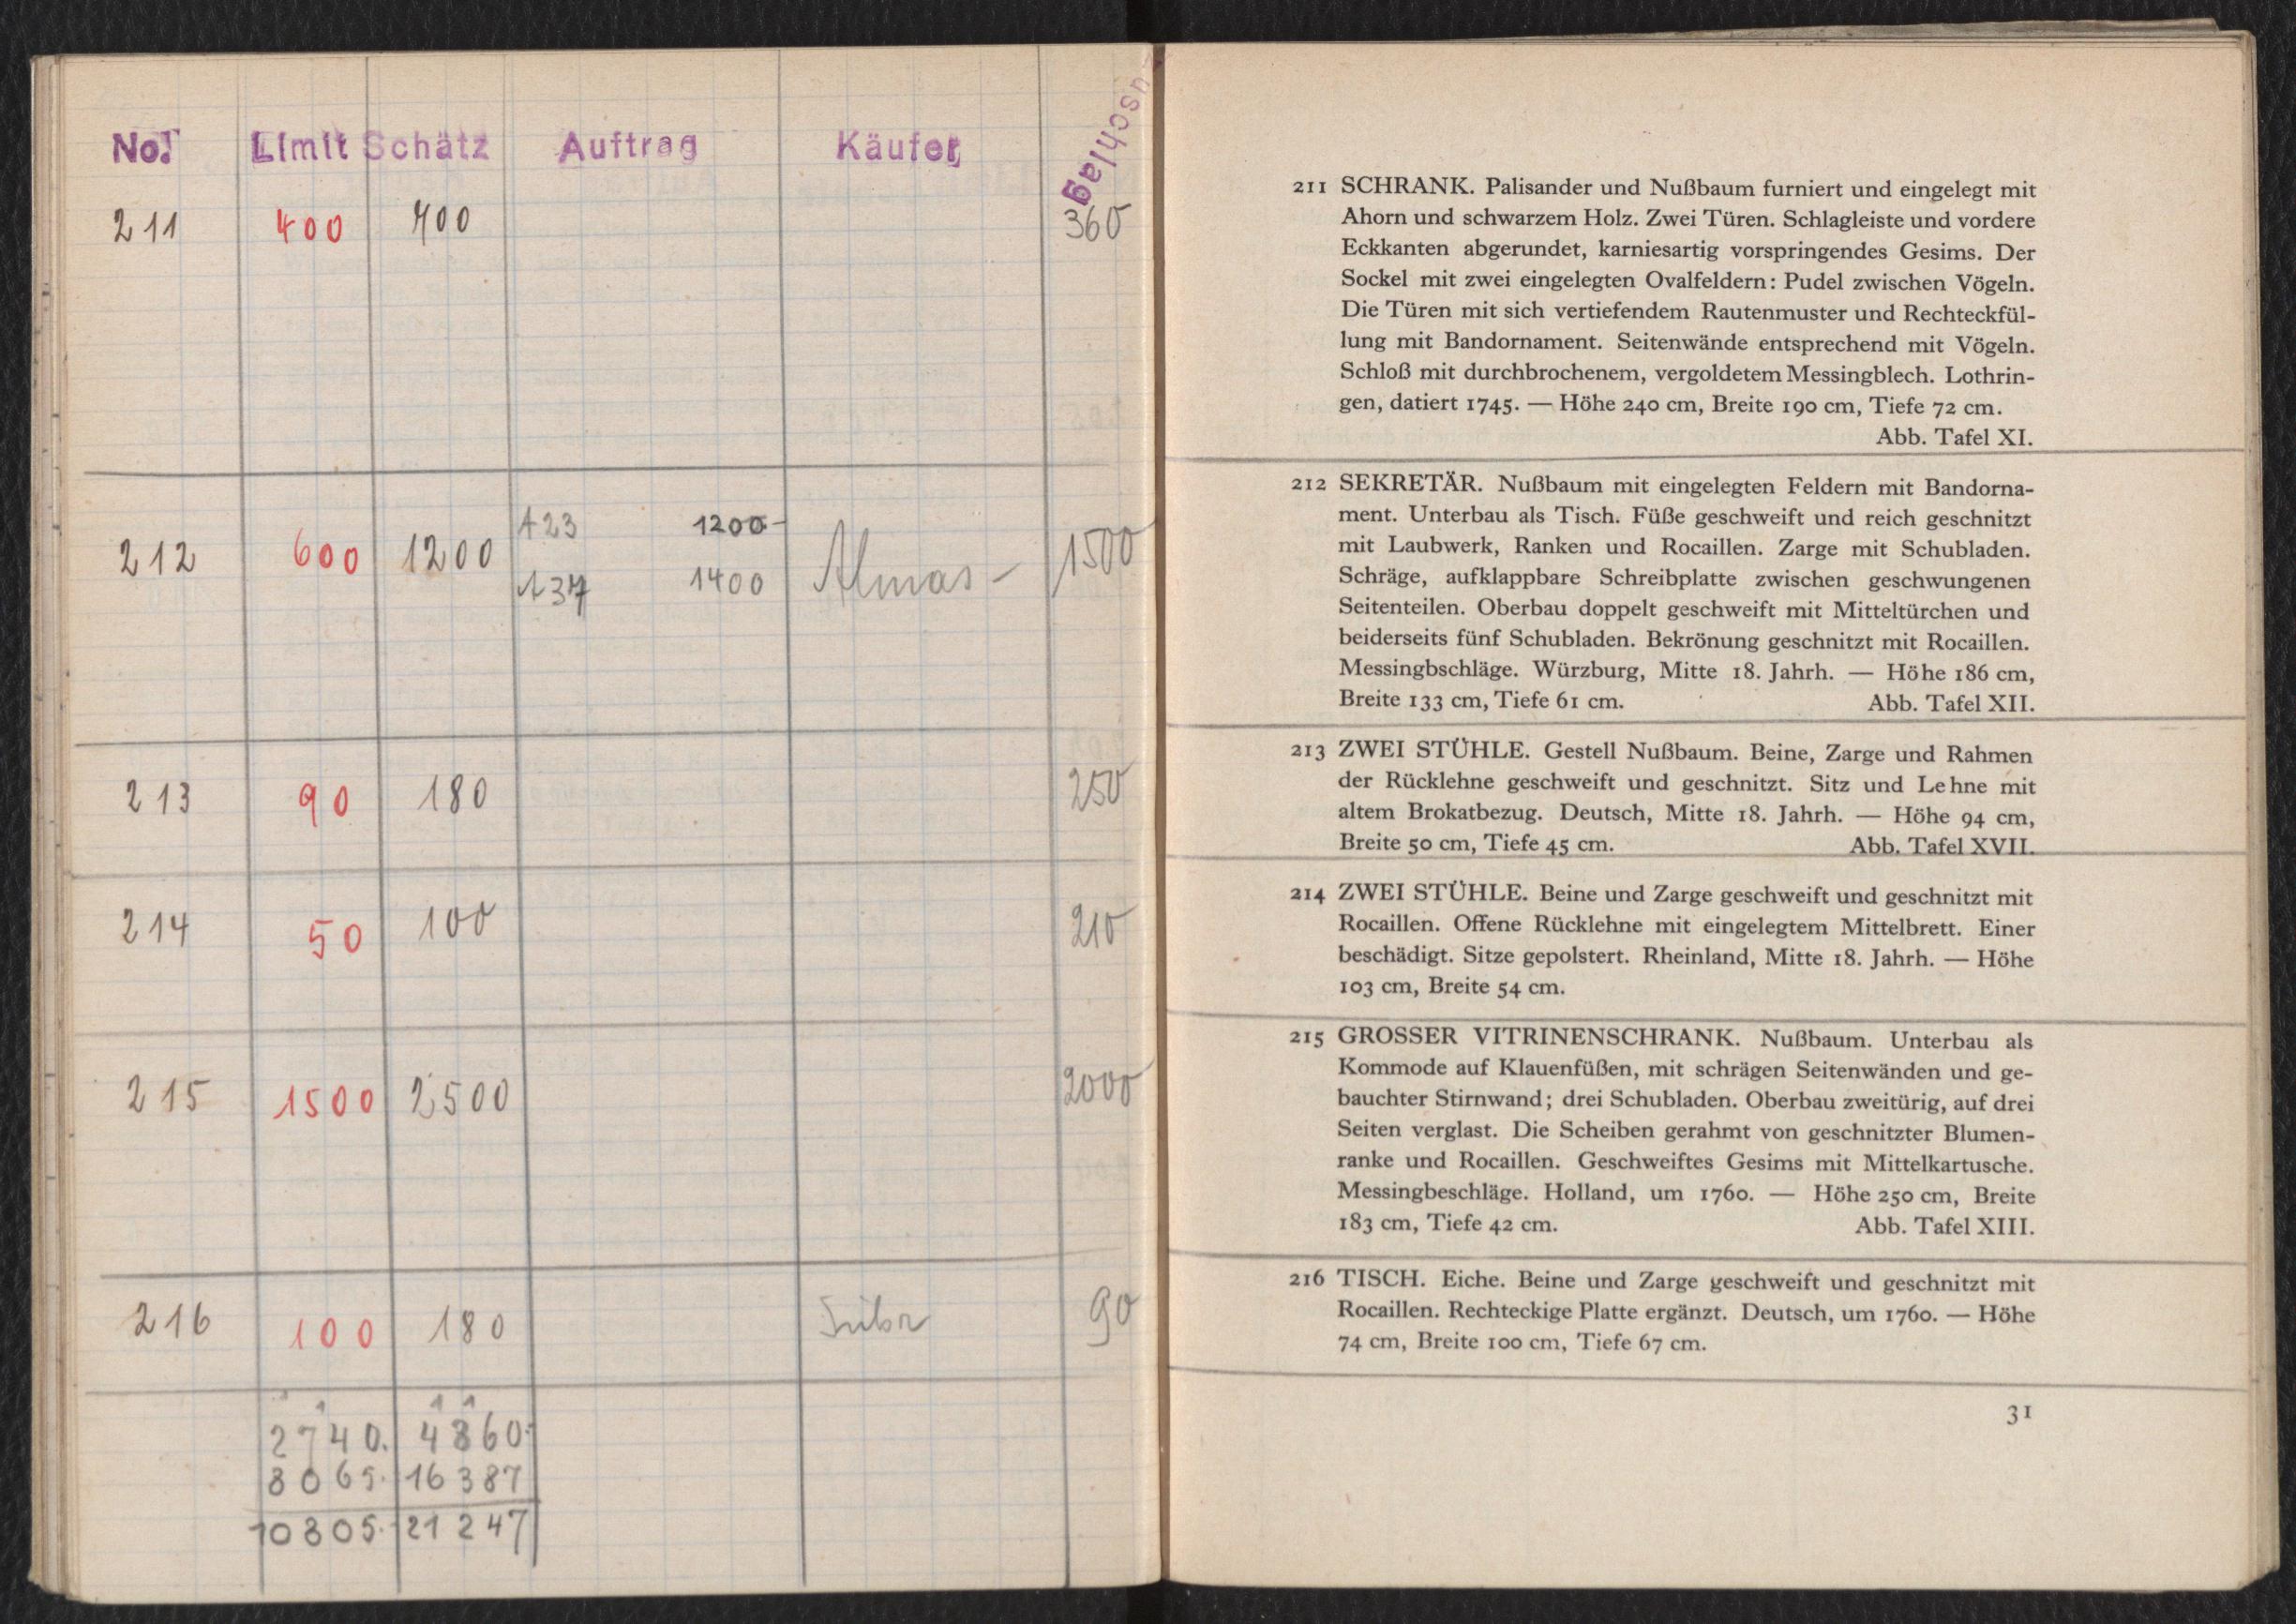 No. Limit Schätz Auftrag Käufer Zuschlag
211 400 700 360
A 23 1200-
212 600 1200 Almas - 1500
A 37 1400
213 90 180 250
214 50 100 210
215 1500 2500 2000
216 100 180 90
2740. 4860.
8065. 16387
10805. 21247
211 SCHRANK. Palisander und Nußbaum furniert und eingelegt mit
Ahorn und schwarzem Holz. Zwei Türen. Schlagleiste und vordere
Eckkanten abgerundet, karniesartig vorspringendes Gesims. Der
Sockel mit zwei eingelegten Ovalfeldern: Pudel zwischen Vögeln.
Die Türen mit sich vertiefendem Rautenmuster und Rechteckfül-
lung mit Bandornament. Seitenwände entsprechend mit Vögeln.
Schloß mit durchbrochenem, vergoldetem Messingblech. Lothrin-
gen, datiert 1745. — Höhe 240 cm, Breite 190 cm, Tiefe 72 cm.
Abb. Tafel XI.
212 SEKRETÄR. Nußbaum mit eingelegten Feldern mit Bandorna-
ment. Unterbau als Tisch. Füße geschweift und reich geschnitzt
mit Laubwerk, Ranken und Rocaillen. Zarge mit Schubladen.
Schräge, aufklappbare Schreibplatte zwischen geschwungenen
Seitenteilen. Oberbau doppelt geschweift mit Mitteltürchen und
beiderseits fünf Schubladen. Bekrönung geschnitzt mit Rocaillen.
Messingbschläge. Würzburg, Mitte 18. Jahrh. — Höhe 186 cm,
Breite 133 cm, Tiefe 61 cm. Abb. Tafel XII.
213 ZWEI STÜHLE. Gestell Nußbaum. Beine, Zarge und Rahmen
der Rücklehne geschweift und geschnitzt. Sitz und Lehne mit
altem Brokatbezug. Deutsch, Mitte 18. Jahrh. — Höhe 94 cm,
Breite 50 cm, Tiefe 45 cm. Abb. Tafel XVII.
214 ZWEI STÜHLE. Beine und Zarge geschweift und geschnitzt mit
Rocaillen. Offene Rücklehne mit eingelegtem Mittelbrett. Einer
beschädigt. Sitze gepolstert. Rheinland, Mitte 18. Jahrh. — Höhe
103 cm, Breite 54 cm.
215 GROSSER VITRINENSCHRANK. Nußbaum. Unterbau als
Kommode auf Klauenfüßen, mit schrägen Seitenwänden und ge-
bauchter Stirnwand; drei Schubladen. Oberbau zweitürig, auf drei
Seiten verglast. Die Scheiben gerahmt von geschnitzter Blumen-
ranke und Rocaillen. Geschweiftes Gesims mit Mittelkartusche.
Messingbeschläge. Holland, um 1760. — Höhe 250 cm, Breite
183 cm, Tiefe 42 cm. Abb. Tafel XIII.
216 TISCH. Eiche. Beine und Zarge geschweift und geschnitzt mit
Rocaillen. Rechteckige Platte ergänzt. Deutsch, um 1760. — Höhe
74 cm, Breite 100 cm, Tiefe 67 cm.
31